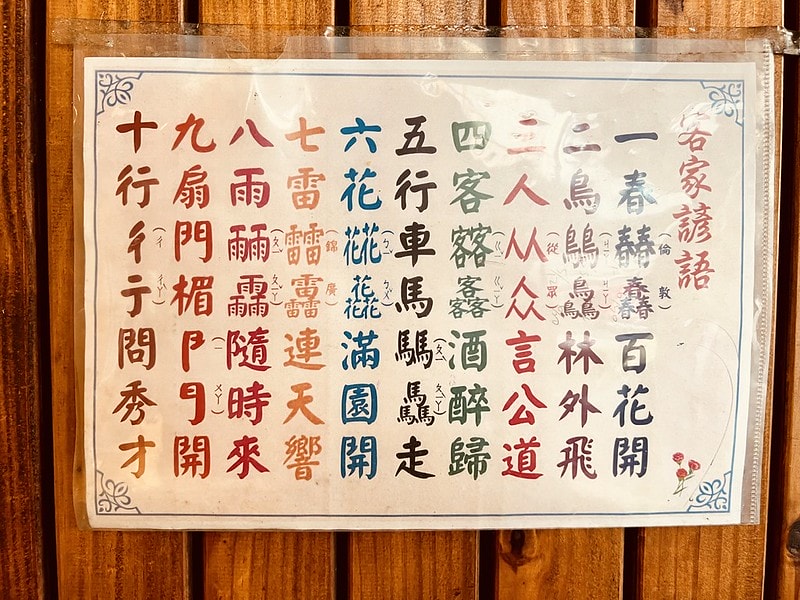 客家諺語
一春春春春春春百花開
(倫敦)
二鳥鳥鳥鳥鳥鳥林外飛
三人从众言公道
(從眾)
四客客客客客客酒醉歸
五行車馬馬馬驫走
六花花花花花花滿園開
七雷雷雷靐連天響
(錦廣)
八雨雨雨雨雨雨隨時來
九扇門楣𠁣𠃛開
十行彳亍問秀才